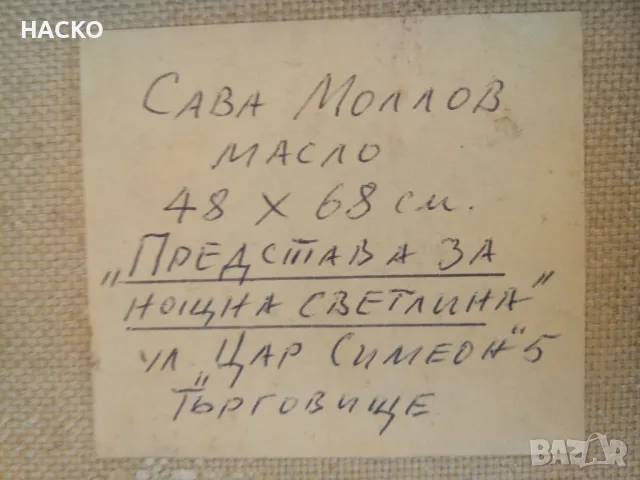 НАСКО
САВА МОЛЛОВ
МАСЛО
48 X 68 см.
„ПРЕДСТАВА ЗА
НОЩНА СВЕТЛИНА"
ул „ЦАР СИМЕОН" 5
ТЪРГОВИЩЕ
BAZAR